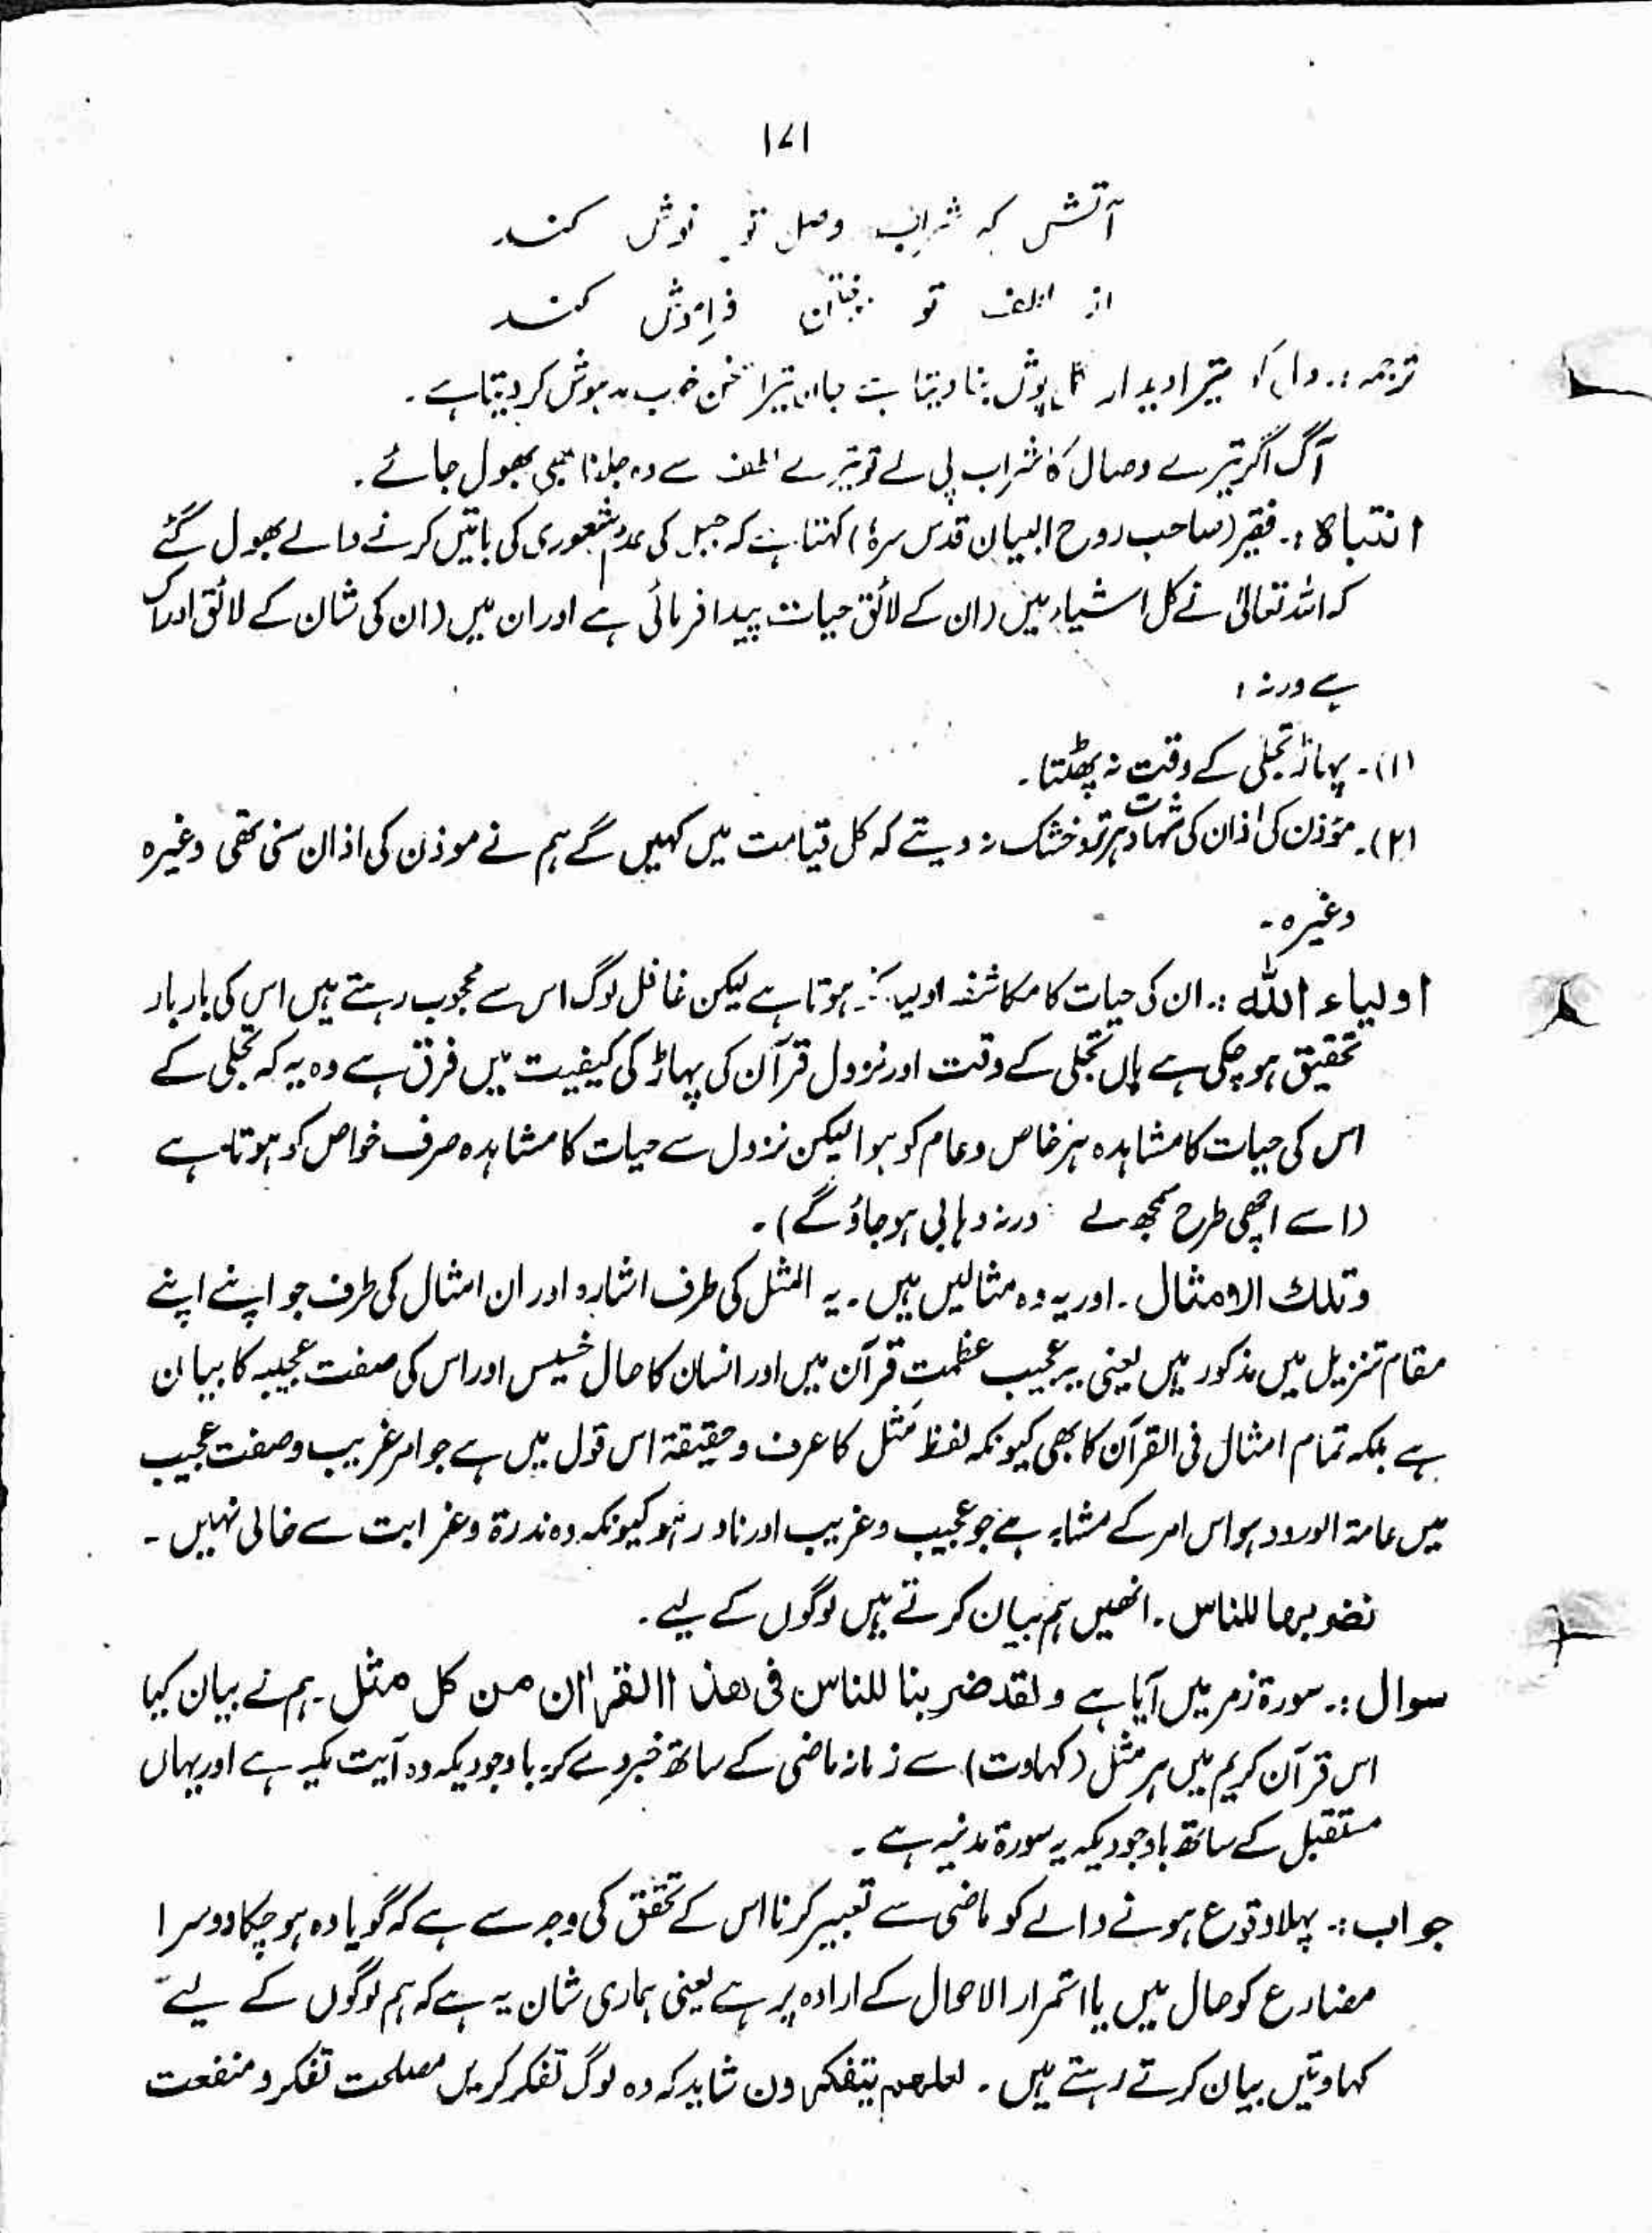 ۱۷۱
آتش کہ شراب وصل تو نوش کند
از لطف تو فراموش کند
ترجمہ :۔ دل کو تیرا دیدار پوش بنا دیتا ہے جان تیرا سخن خوب مدہوش کر دیتا ہے ۔
آگ اگر تیرے وصال کا شراب پی لے تو تیرے لطف سے وہ جلانا بھی بھول جائے ۔
انتباہ :۔ فقیر (صاحب روح البیان قدس سرہٗ) کہتا ہے کہ جبل کی عدم شعوری کی باتیں کرنے والے بھول گئے
کہ اللہ تعالیٰ نے کل اشیاء میں (ان کے لائق حیات پیدا فرمائی ہے اور ان میں (ان کی شان کے لائق ادراک
ہے ورنہ ؛
(۱)۔ پہاڑ تجلی کے وقت نہ پھٹتا ۔
(۲)۔ مؤذن کی اذان کی شہادت ہر تر و خشک نہ دیتے کہ کل قیامت میں کہیں گے ہم نے موذن کی اذان سنی تھی وغیرہ
وغیرہ ۔
اولیاء اللہ :۔ ان کی حیات کا مکاشفہ اولیاء کو ہوتا ہے لیکن غافل لوگ اس سے محجوب رہتے ہیں اس کی بار بار
تحقیق ہو چکی ہے ہاں تجلی کے وقت اور نزول قرآن کی پہاڑ کی کیفیت میں فرق ہے وہ یہ کہ تجلی کے
اس کی حیات کا مشاہدہ ہر خاص و عام کو ہوا لیکن نزول سے حیات کا مشاہدہ صرف خواص کو ہوتا ہے
(اسے اچھی طرح سمجھ لے ورنہ وہابی ہو جاؤ گے) ۔
وتلك الامثال ۔ اور یہ وہ مثالیں ہیں ۔ یہ المثل کی طرف اشارہ اور ان امثال کی طرف جو اپنے اپنے
مقام تنزیل میں مذکور ہیں یعنی یہ عجیب عظمتِ قرآن میں اور انسان کا حال خسیس اور اس کی صفت عجیبہ کا بیان
ہے بلکہ تمام امثال فی القرآن کا بھی کیونکہ لفظ مَثل کا عرف و حقیقۃ اس قول میں ہے جو امر غریب و صفت عجیب
میں عامۃ الورود ہو اس امر کے مشابہ ہے جو عجیب و غریب اور نادر ہو کیونکہ وہ ندرۃ و غرابت سے خالی نہیں ۔
نضربها للناس ۔ انھیں ہم بیان کرتے ہیں لوگوں کے لیے ۔
سوال :۔ سورۃ زمر میں آیا ہے ولقد ضربنا للناس فی هذا القرآن من کل مثل ۔ ہم نے بیان کیا
اس قرآن کریم میں ہر مثل (کہاوت) سے زمانہ ماضی کے ساتھ خبر دے کر باوجودیکہ وہ آیت مکیہ ہے اور یہاں
مستقبل کے ساتھ باوجودیکہ یہ سورۃ مدنیہ ہے ۔
جواب :۔ پہلا وقوع ہونے والے کو ماضی سے تعبیر کرنا اس کے تحقق کی وجہ سے ہے کہ گویا وہ ہو چکا دوسرا
مضارع کو حال میں یا استمرار الاحوال کے ارادہ پر ہے یعنی ہماری شان یہ ہے کہ ہم لوگوں کے لیے
کہاوتیں بیان کرتے رہتے ہیں ۔ لعلهم یتفکرون شاید کہ وہ لوگ تفکر کریں مصلحت تفکر و منفعت